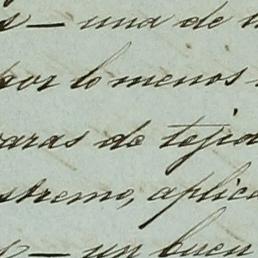 s — una de
por lo menos
varas de tejid
streme, aplica
— un buen